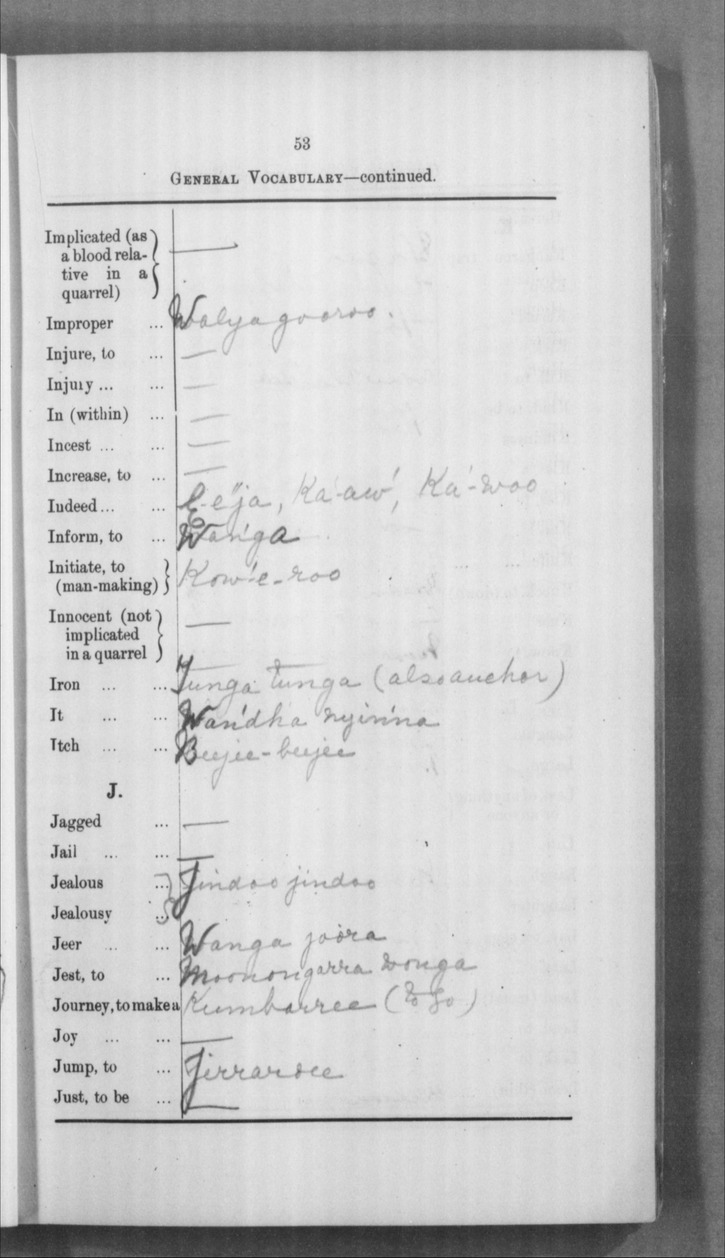 53
GENERAL VOCABULARY—continued.
Implicated (as —
a blood rela-
tive in a
quarrel)
Improper ... Walya gooroo.
Injure, to ... —
Injury ... ... —
In (within) ... —
Incest ... ... —
Increase, to ... —
Indeed ... ... E-e"ja, Ka'-aw', Ka'-woo
Inform, to ... Wan'ga
Initiate, to
(man-making) Kow'-e-roo
Innocent (not
implicated —
in a quarrel
Iron ... ... Tunga tunga (also anchor)
It ... ... Wan'dha nyin'na
Itch ... ... Beejee-beejee
J.
Jagged ... —
Jail ... ... —
Jealous ... Jindoo jindoo
Jealousy ...
Jeer ... ... Wanga joora
Jest, to ... Moonongarra wonga
Journey, to make a Kumbarree (to go)
Joy ... ... —
Jump, to ... Jirraroee
Just, to be ... —